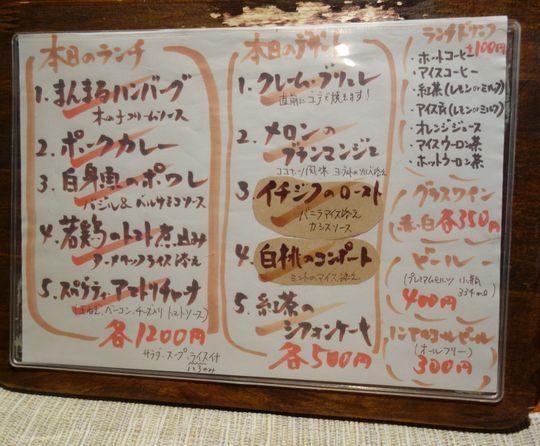 本日のランチ
1. まんまるハンバーグ
きのこクリームソース
2. ポークカレー
3. 白身魚のポワレ
バジル&バルサミコソース
4. 若鶏のトマト煮込み
ターメリックライス添え
5. スパゲティーアマトリチャーナ
ベーコン、チーズ入りトマトソース)
各1200円
サラダ・スープ・ライス付
1と3のみ
本日のデザート
1. クレーム・ブリュレ
直前にコテで焼きます!
2. メロンの
ブランマンジェ
ココナッツ風味
3 イチジクのロースト
バニラアイス添え
カシスソース
4. 白桃のコンポート
ミントのアイス添え
5. 紅茶の
シフォンケーキ
各500円
ランチドリンク
+100円
・ホットコーヒー
・アイスコーヒー
・紅茶(レモンorミルク)
・アイスティ(レモンorミルク)
・オレンジジュース
・アイスウーロン茶
・ホットウーロン茶
グラスワイン
赤・白各350円
ビール
(プレミアムモルツ 小瓶
334ml)
400円
ノンアルコールビール
(オールフリー)
300円